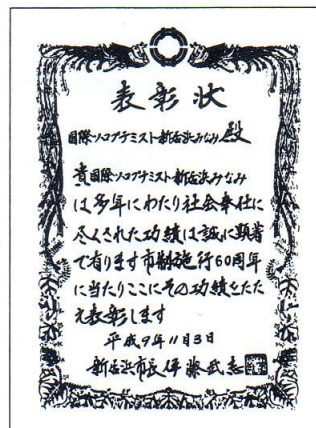 表彰状
国際ソロプチミスト新居浜みなみ殿
貴国際ソロプチミスト新居浜みなみ
は多年にわたり社会奉仕に
尽くされた功績は誠に顕著
で有ります市制施行60周年
に当たりここにその功績をたた
え表彰します
平成9年11月3日
新居浜市長伊藤武志